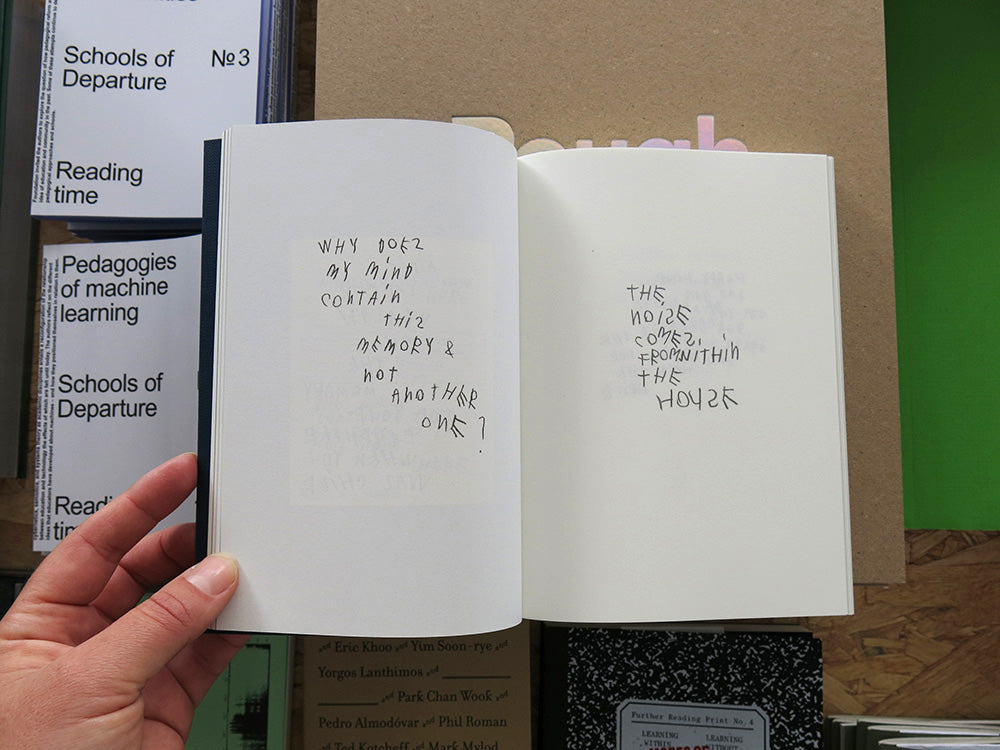 Schools of
Departure
№3
Reading
time
Pedagogies
of machine
learning
Schools of
Departure
WHY DOES
MY MIND
CONTAIN
THIS
MEMORY &
NOT
ANOTHER
ONE?
THE
NOISE
COMES
FROMWITHIN
THE
HOUSE
and Eric Khoo and Yim Soon-rye and
Yorgos Lanthimos and
and Park Chan Wook and
Pedro Almodóvar and Phil Roman
and Ted Kotcheff and Mark Mylod
Further Reading Print No. 4
LEARNING
WITHIN
LEARNING
WITHOUT